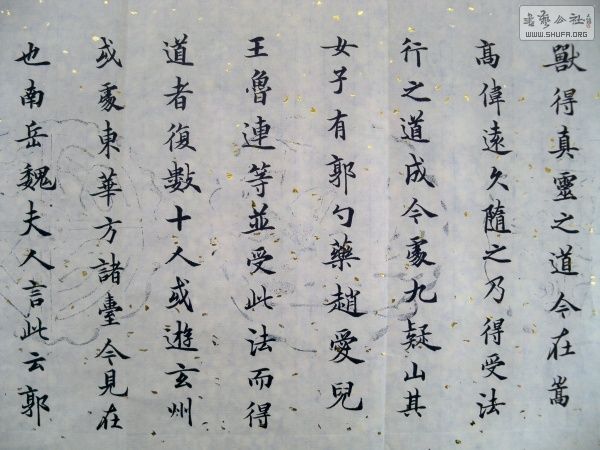 獸得真靈之道今在嵩
高偉遠久隨之乃得受法
行之道成今處九疑山其
女子有郭勺藥趙愛兒
王魯連等並受此法而得
道者復數十人或遊玄州
或處東華方諸臺今見在
也南岳魏夫人言此云郭
書藝公社
WWW.SHUFA.ORG